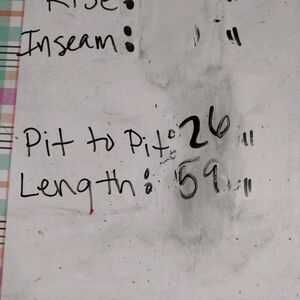 Rise:
Inseam: "
Pit to Pit: 26"
Length: 59"